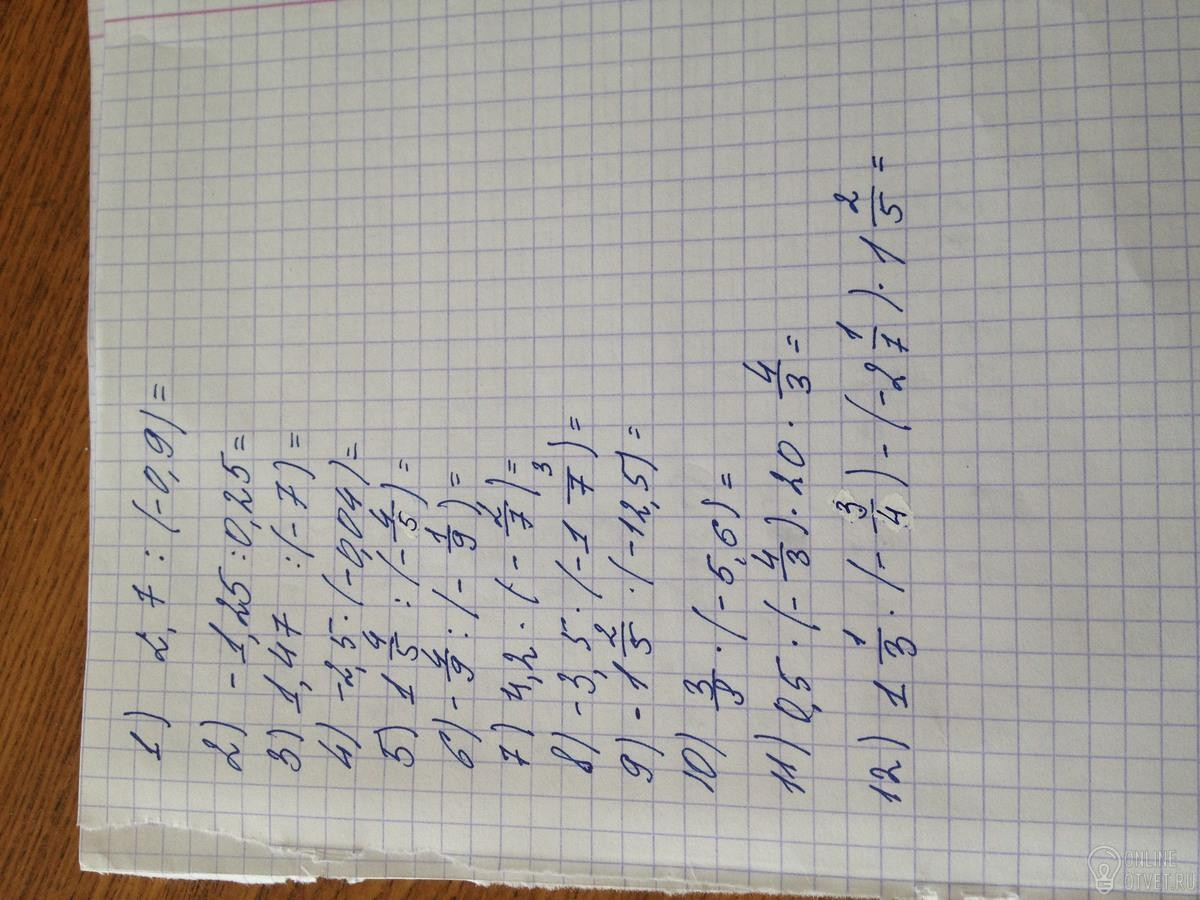 1) 2,7 : (-0,9) =
2) -1,25 : 0,25 =
3) 1,47 : (-7) =
4) -2,5 · (-0,04) =
5) 1 4/5 : (-4/5) =
6) -4/9 : (-1/9) =
7) 4,2 · (-2/7) =
8) -3,5 · (-1 3/7) =
9) -1 2/5 · (-12,5) =
10) 3/8 · (-5,6) =
11) 0,5 · (-4/3) · 20 · 4/3 =
12) 1 1/3 · (-3/4) - (-2 1/7) · 1 2/5 =
ONLINE
OTVET.RU